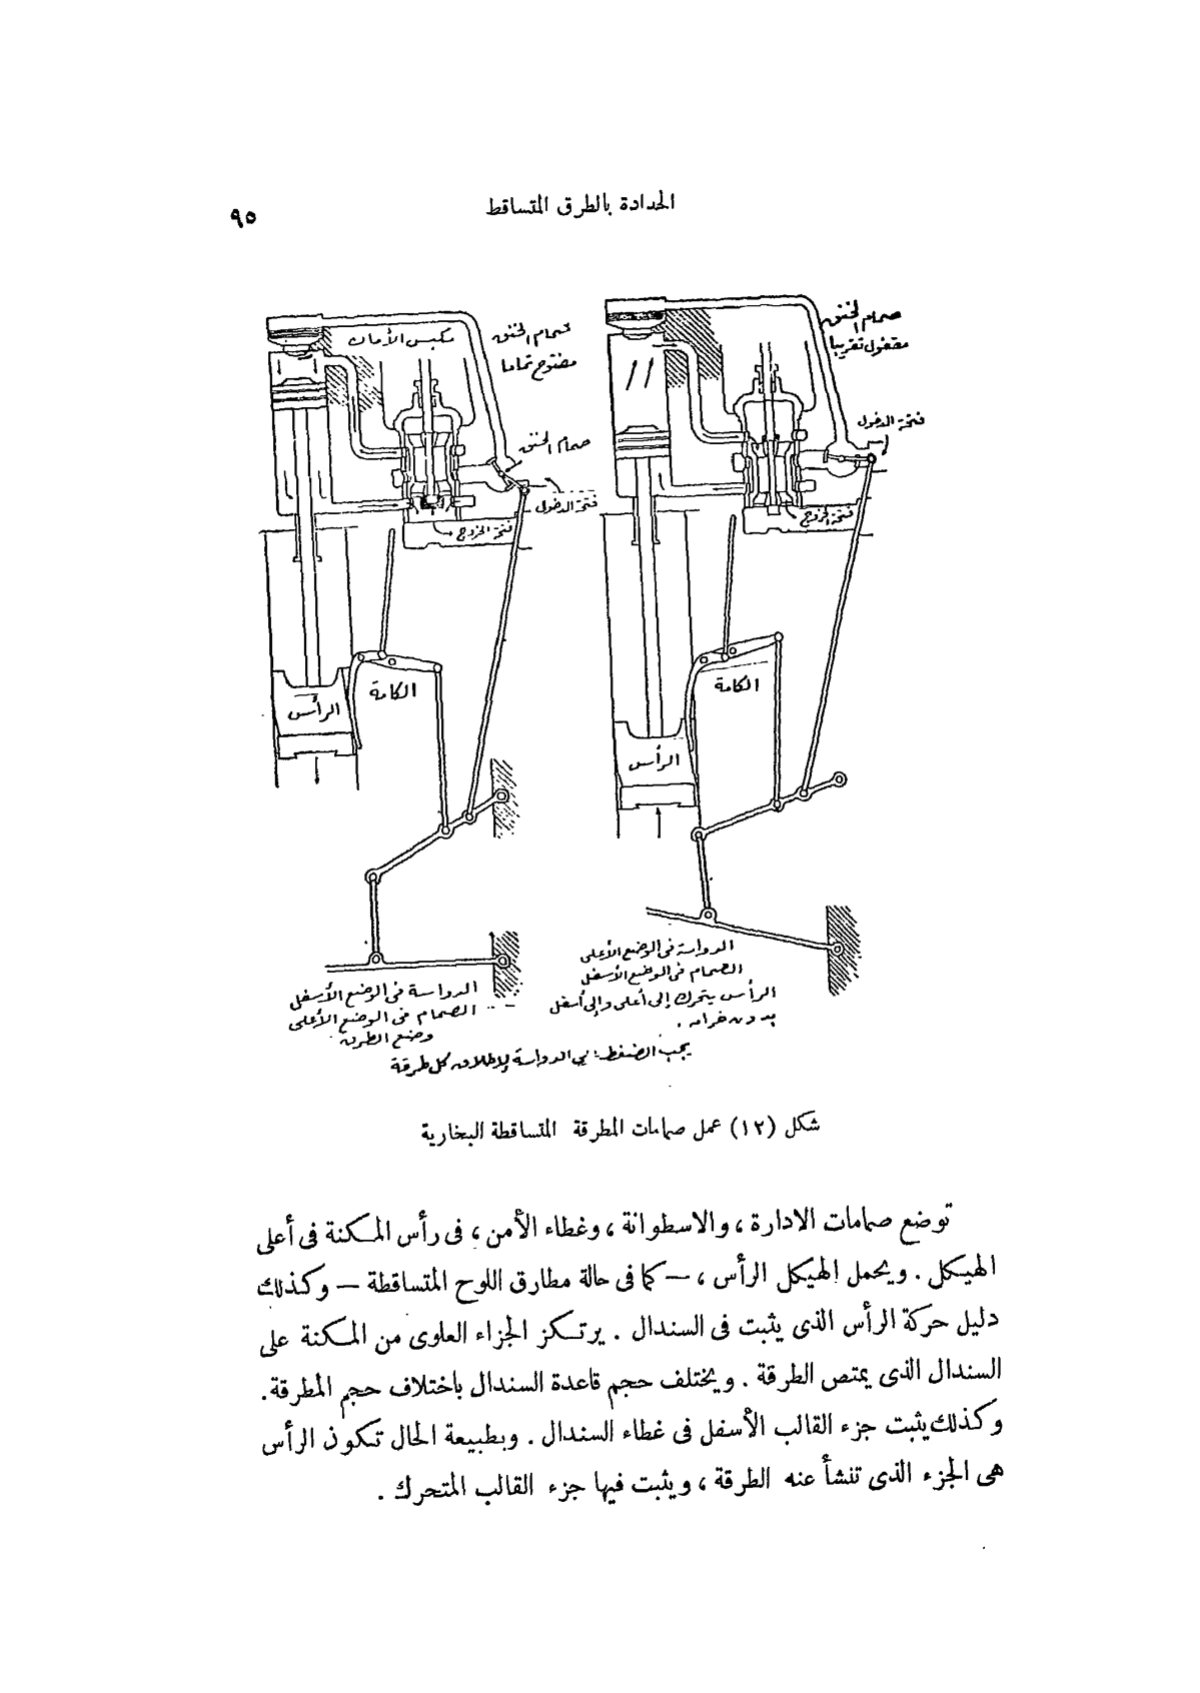 الحدادة بالطرق المتساقط
٩٥
صمام الخنق
مقفول تقريبا
فتحة الدخول
فتحة الخروج
الكامة
الرأس
مكبس الأمان
صمام الخنق
مفتوح تماما
صمام الخنق
فتحة الدخول
فتحة الخروج
الكامة
الرأس
الدواسة فى الوضع الأعلى
الصمام فى الوضع الأسفل
الرأس يتحرك إلى أعلى وإلى أسفل
بدون
الدواسة فى الوضع الأسفل
الصمام فى الوضع الأعلى
وضع الطرق
يجب الضغط الدواسة لإطلاق كل طرقة
شكل (١٢) عمل صمامات المطرقة المتساقطة البخارية
توضع صمامات الادارة ، والاسطوانة ، وغطاء الأمن ، فى رأس المكنة فى أعلى
الهيكل . ويحمل الهيكل الرأس ، — كما فى حالة مطارق اللوح المتساقطة — وكذلك
دليل حركة الرأس الذى يثبت فى السندال . يرتكز الجزاء العلوى من المكنة على
السندال الذى يمتص الطرقة . ويختلف حجم قاعدة السندال باختلاف حجم المطرقة .
وكذلك يثبت جزء القالب الأسفل فى غطاء السندال . وبطبيعة الحال تكون الرأس
هى الجزء الذى تنشأ عنه الطرقة ، ويثبت فيها جزء القالب المتحرك .